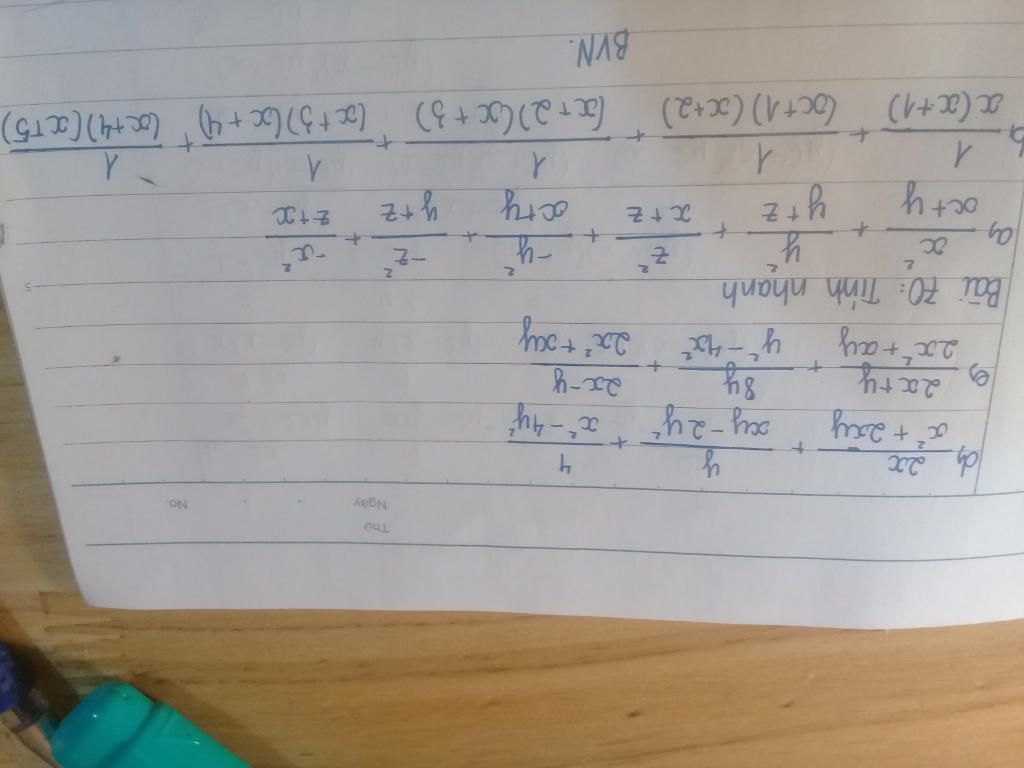 Thứ
Ngày . . No.
d, 2x/(x² + 2xy) + y/(xy - 2y²) + 4/(x² - 4y²)
e, (2x+y)/(2x² + xy) + 8y/(y² - 4x²) + (2x-y)/(2x² + xy)
Bài 70: Tính nhanh
a, x²/(x+y) + y²/(y+z) + z²/(x+z) + -y²/(x+y) + -z²/(y+z) + -x²/(z+x)
b, 1/(x(x+1)) + 1/((x+1)(x+2)) + 1/((x+2)(x+3)) + 1/((x+3)(x+4)) + 1/((x+4)(x+5))
BVN.
5